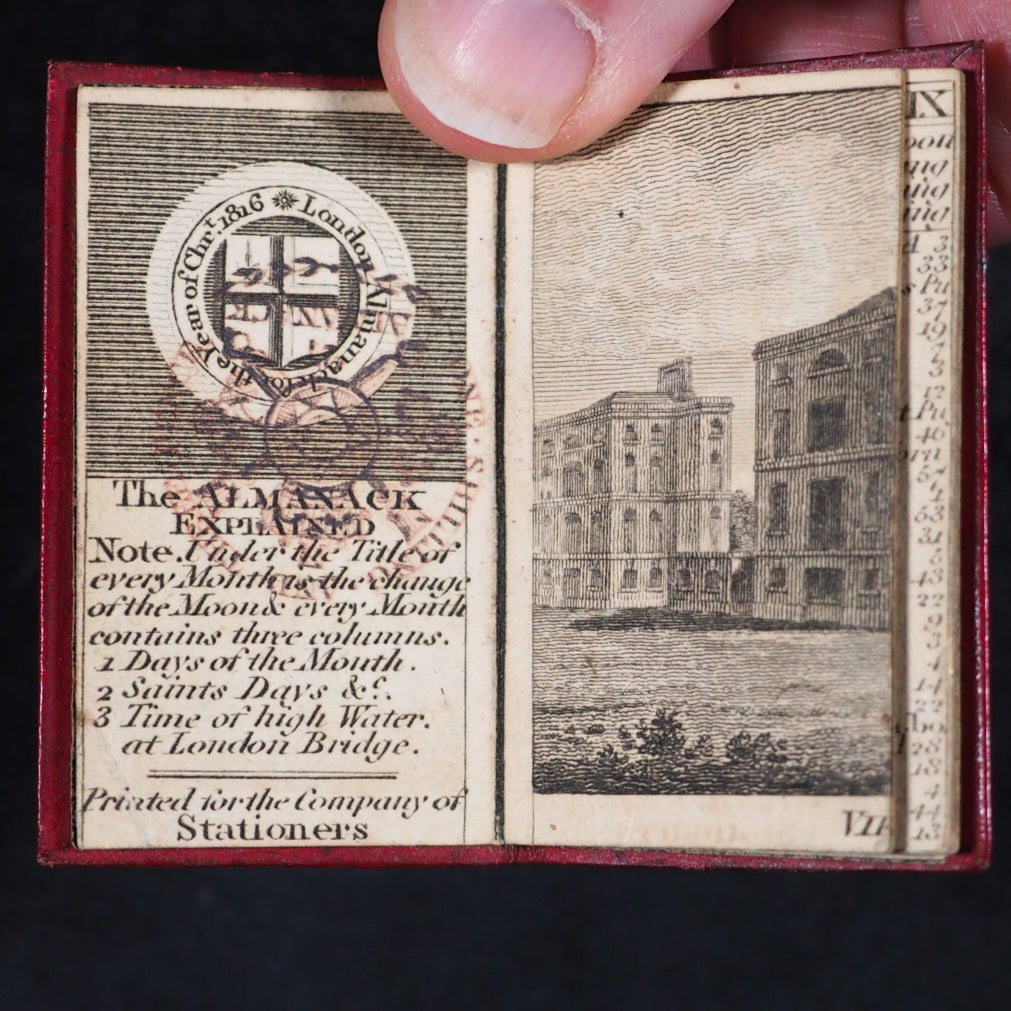 London Almanack for the Year of Chr.t 1816
The ALMANACK
EXPLAINED
Note. Under the Title of
every Month is the change
of the Moon & every Month
contains three columns.
1 Days of the Month.
2 Saints Days &c.
3 Time of high Water.
at London Bridge.
Printed for the Company of
Stationers
VII
IX
oon
ng
ing
ing
3
33
s Pu
37
19
7
3
12
t. Pu
46
57
1
53
31
5
43
22
9
3
4
14
22
28
18
4
44
13